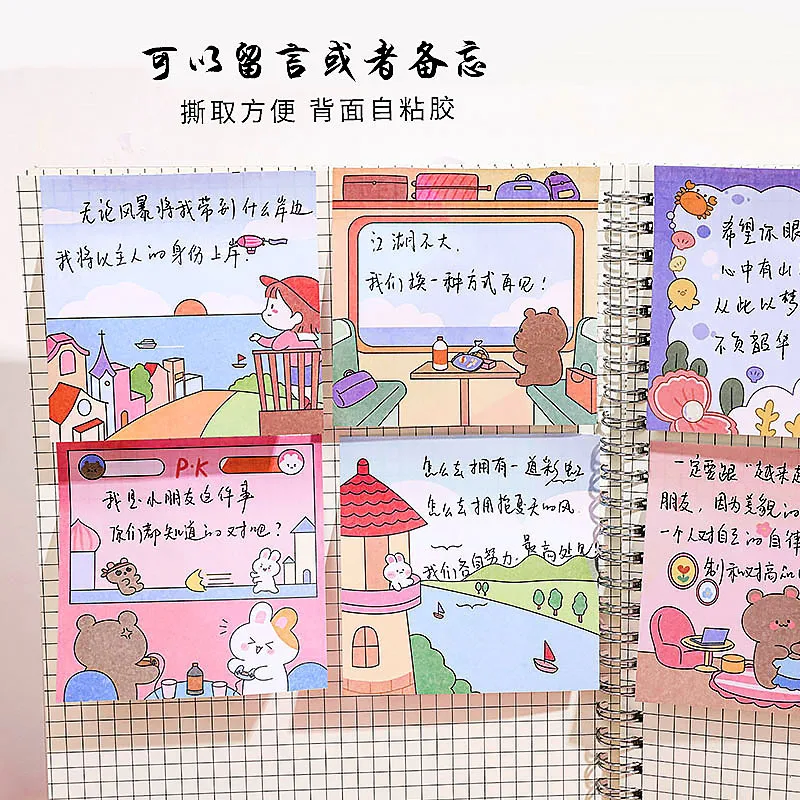 可以留言或者备忘
撕取方便 背面自粘胶
无论风暴将我带到什么岸边
我将以主人的身份上岸.
江湖不大.
我们换一种方式再见！
希望你眼
心中有山
从此以梦
不负韶华
P·K
我是小朋友这件事
你们都知道的对吧？
怎么去拥有一道彩虹
怎么去拥抱夏天的风
我们各自努力.最高处见
一定要跟“越来越
朋友，因为美貌的
一个人对自己的自律
制和对高